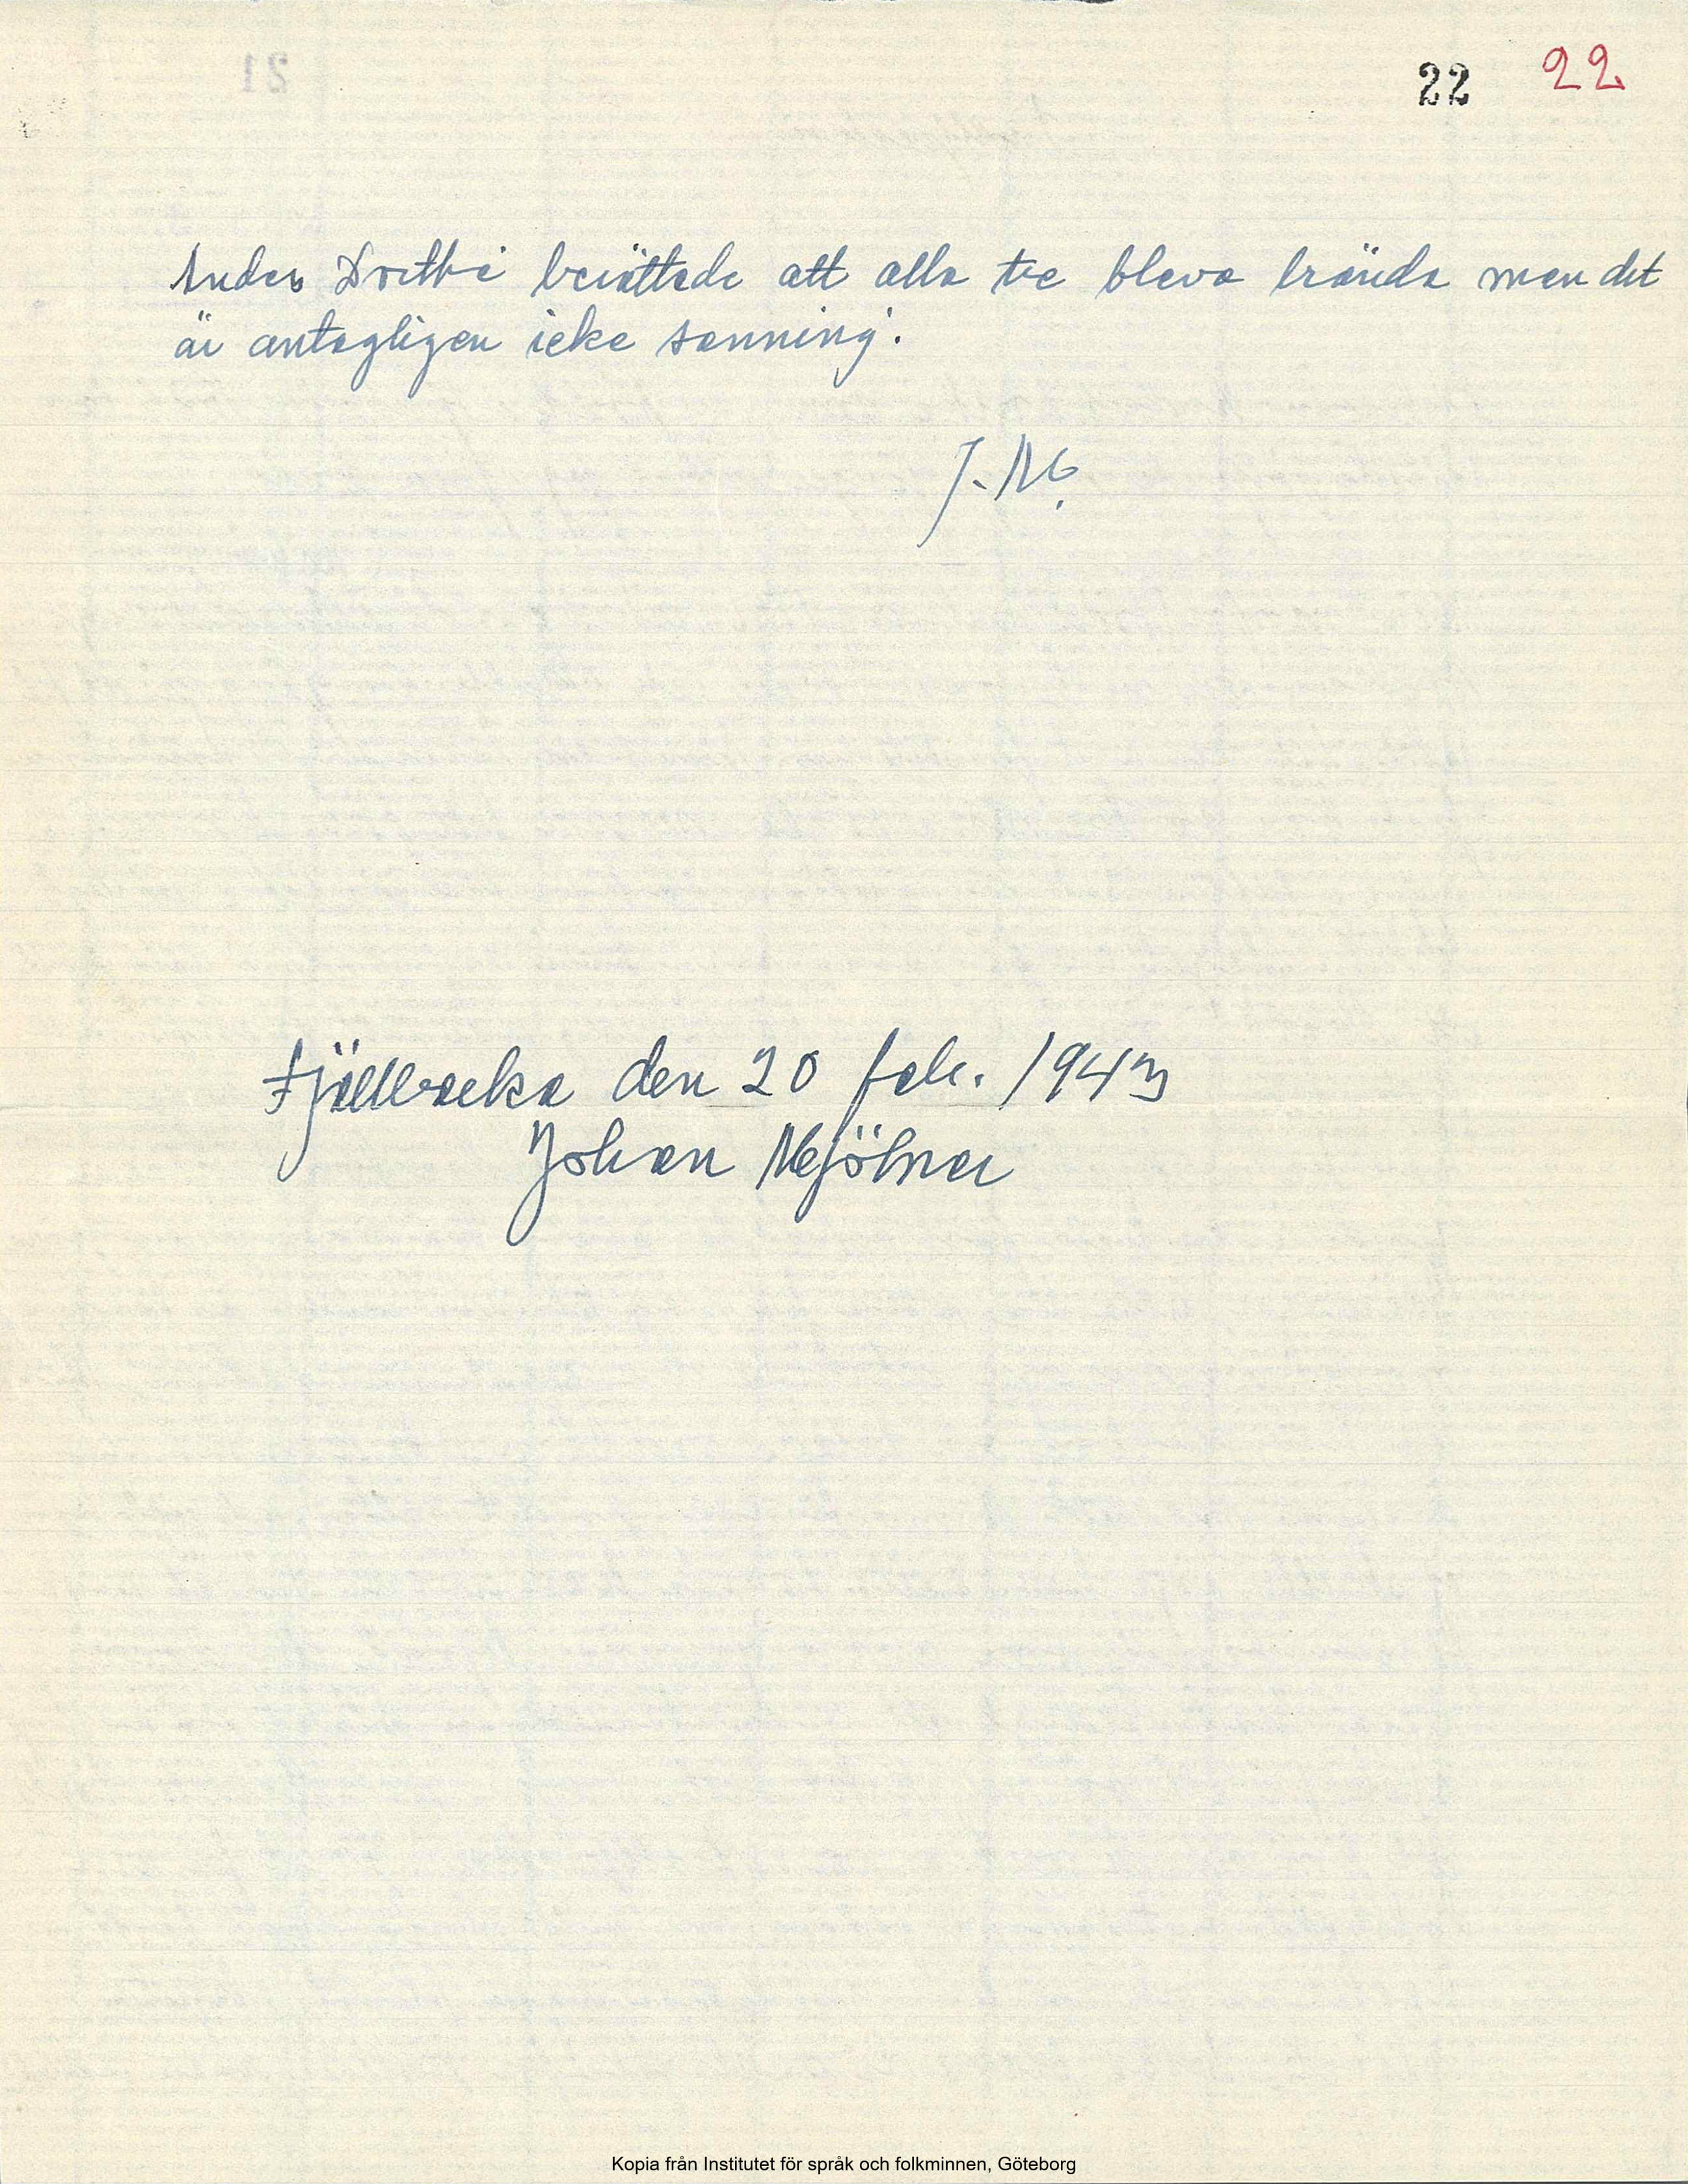 22 22.
Anders Dritti berättade att alla tre bleva brända men det
är antagligen icke sanning.
J. M.
Fjällbacka den 20 feb. 1943
Johan Mjölner
Kopia från Institutet för språk och folkminnen, Göteborg